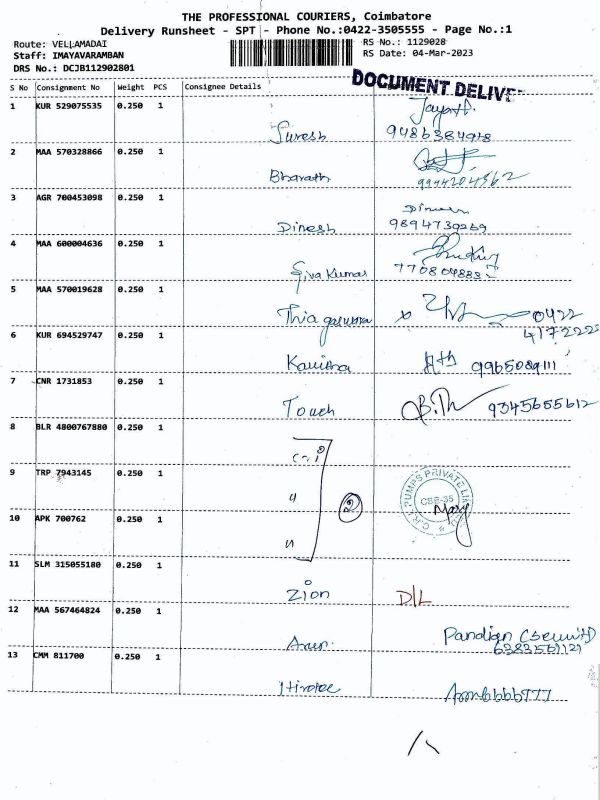 THE PROFESSIONAL COURIERS, Coimbatore
Delivery Runsheet - SPT - Phone No.:0422-3505555 - Page No.:1
Route: VELLAMADAI
RS No.: 1129028
Staff: IMAYAVARAMBAN
RS Date: 04-Mar-2023
DRS No.: DCJB112902801
DOCUMENT DELIVE
S No Consignment No Weight PCS Consignee Details
1 KUR 529075535 0.250 1
Suresh
2 MAA 570328866 0.250 1
Bharath 9944204562
3 AGR 700453098 0.250 1
Dinesh 9894730269
4 MAA 600004636 0.250 1
Siva Kumar
5 MAA 570019628 0.250 1
0422
4172222
6 KUR 694529747 0.250 1
Kavitha 9965089111
7 CNR 1731853 0.250 1
Touch 9345655612
8 BLR 4800767880 0.250 1
9 TRP 7943145 0.250 1
C.R.I. PUMPS PRIVATE LIMITED
CBE-35
2
10 APK 700762 0.250 1
11 SLM 315055180 0.250 1
Zion D/L
12 MAA 567464824 0.250 1
Pandian
13 CMM 811700 0.250 1